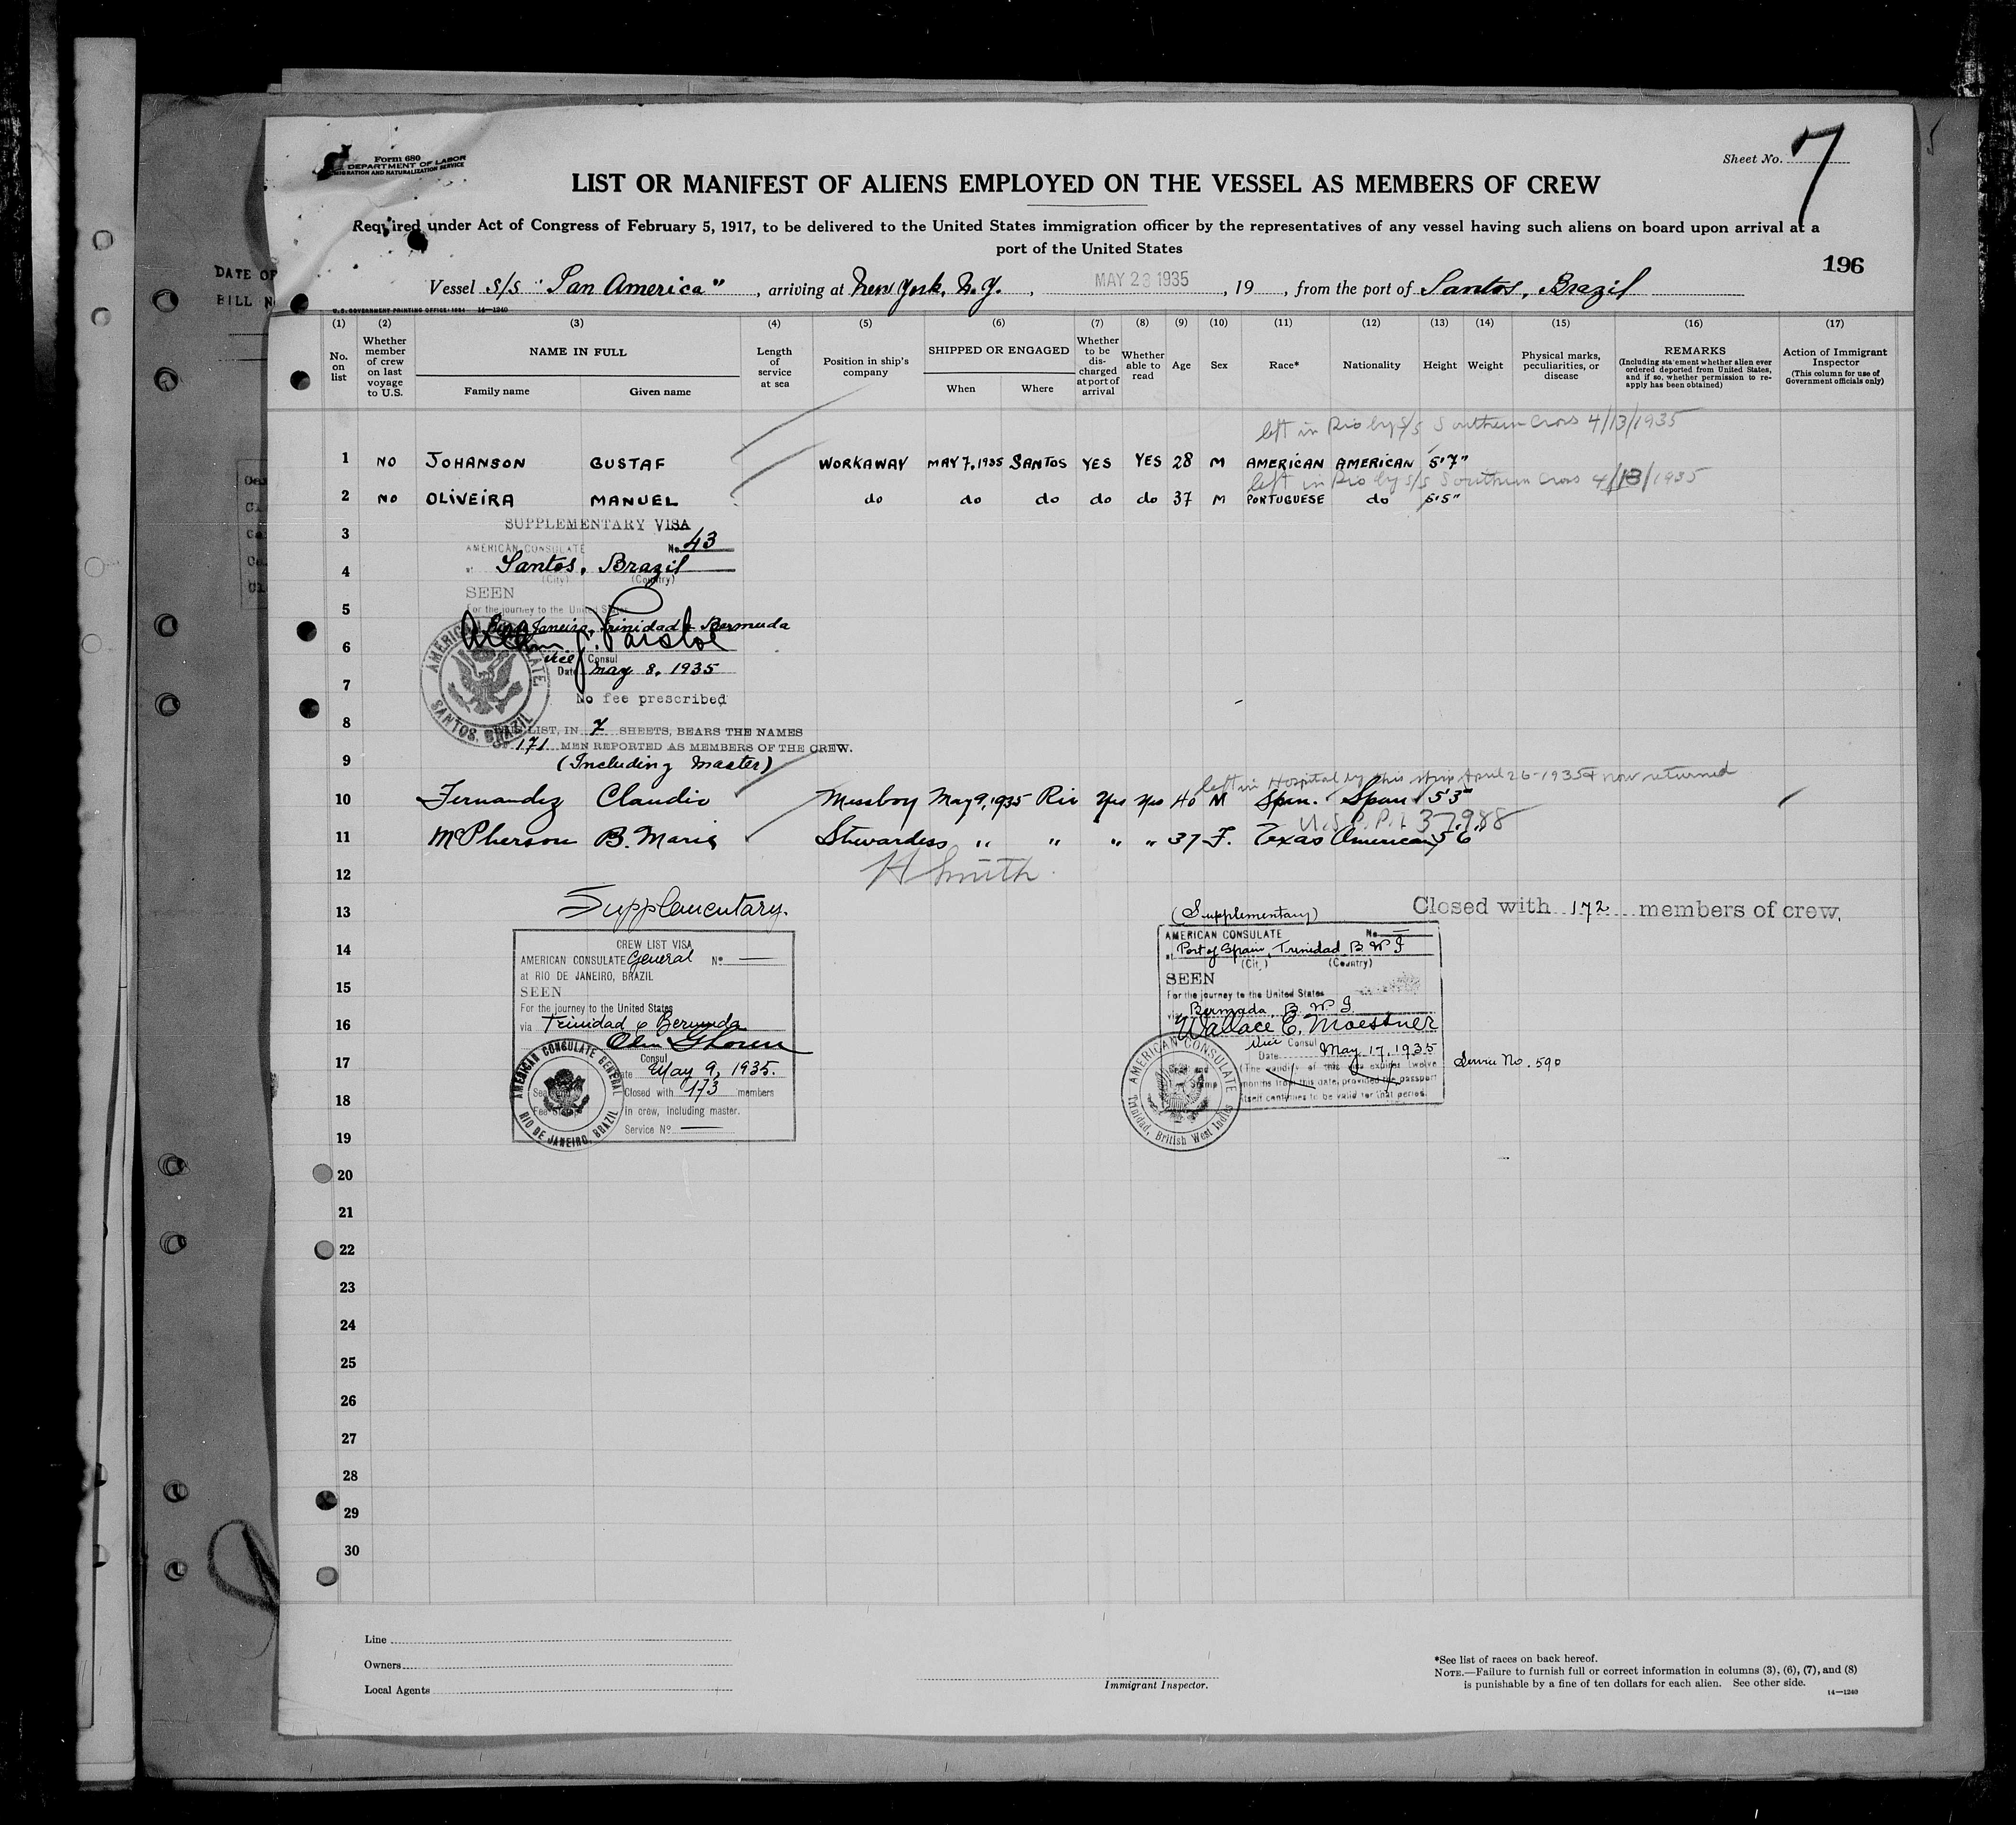 Form 680
DEPARTMENT OF LABOR
IMMIGRATION AND NATURALIZATION SERVICE
Sheet No. 7
LIST OR MANIFEST OF ALIENS EMPLOYED ON THE VESSEL AS MEMBERS OF CREW
Required under Act of Congress of February 5, 1917, to be delivered to the United States immigration officer by the representatives of any vessel having such aliens on board upon arrival at a
port of the United States
196
DATE OF
BILL N
Vessel S/S "Pan America", arriving at New York, N.Y., MAY 23 1935, 19, from the port of Santos, Brazil
U.S. GOVERNMENT PRINTING OFFICE: 1934 14—1240
(1) (2) (3) (4) (5) (6) (7) (8) (9) (10) (11) (12) (13) (14) (15) (16) (17)
No. on list
Whether member of crew on last voyage to U.S.
NAME IN FULL
Family name Given name
Length of service at sea
Position in ship's company
SHIPPED OR ENGAGED
When Where
Whether to be discharged at port of arrival
Whether able to read
Age
Sex
Race*
Nationality
Height
Weight
Physical marks, peculiarities, or disease
REMARKS
(Including statement whether alien ever ordered deported from United States, and if so, whether permission to reapply has been obtained)
Action of Immigrant Inspector
(This column for use of Government officials only)
left in Rio by S/S Southern Cross 4/13/1935
1 NO JOHANSON GUSTAF WORKAWAY MAY 7, 1935 SANTOS YES YES 28 M AMERICAN AMERICAN 5'7"
left in Rio by S/S Southern Cross 4/13/1935
2 NO OLIVEIRA MANUEL do do do do do 37 M PORTUGUESE do 5'5"
SUPPLEMENTARY VISA
3
AMERICAN CONSULATE No. 43
4
at Santos, Brazil
(City) (Country)
SEEN
5
For the journey to the United States
Janeiro, Trinidad & Bermuda
6
Vice Consul
Date May 8, 1935
7
No fee prescribed
AMERICAN CONSULATE, SANTOS, BRAZIL
8
LIST, IN 7 SHEETS, BEARS THE NAMES
OF 171 MEN REPORTED AS MEMBERS OF THE CREW.
9
(Including Master)
left in Hospital by this ship April 26-1935 & now returned
10 Fernandez Claudio Messboy May 9, 1935 Rio Yes Yes 40 M Span. Span 5'3"
U.S. P.P. 37988
11 McPherson B. Marie Stewardess " " " " 37 F. Texas American 5'6"
12
H Smith
13
Supplementary.
(Supplementary)
Closed with 172 members of crew.
14
CREW LIST VISA
AMERICAN CONSULATE General No —
at RIO DE JANEIRO, BRAZIL
SEEN
For the journey to the United States
via Trinidad & Bermuda
Consul
Date May 9, 1935.
Closed with 173 members
in crew, including master.
Service No —
AMERICAN CONSULATE GENERAL RIO DE JANEIRO, BRAZIL
AMERICAN CONSULATE No. —
at Port of Spain, Trinidad B W I
(City) (Country)
SEEN
For the journey to the United States
via Bermuda, B W I
Wallace E. Moessner
Vice Consul
Date May 17, 1935
(The validity of this visa expires twelve
months from this date, provided the passport
itself continues to be valid for that period.
Service No. 590
AMERICAN CONSULATE Trinidad, British West Indies
15
16
17
18
19
20
21
22
23
24
25
26
27
28
29
30
Line
Owners
Local Agents
Immigrant Inspector.
*See list of races on back hereof.
NOTE.—Failure to furnish full or correct information in columns (3), (6), (7), and (8)
is punishable by a fine of ten dollars for each alien. See other side.
14—1240